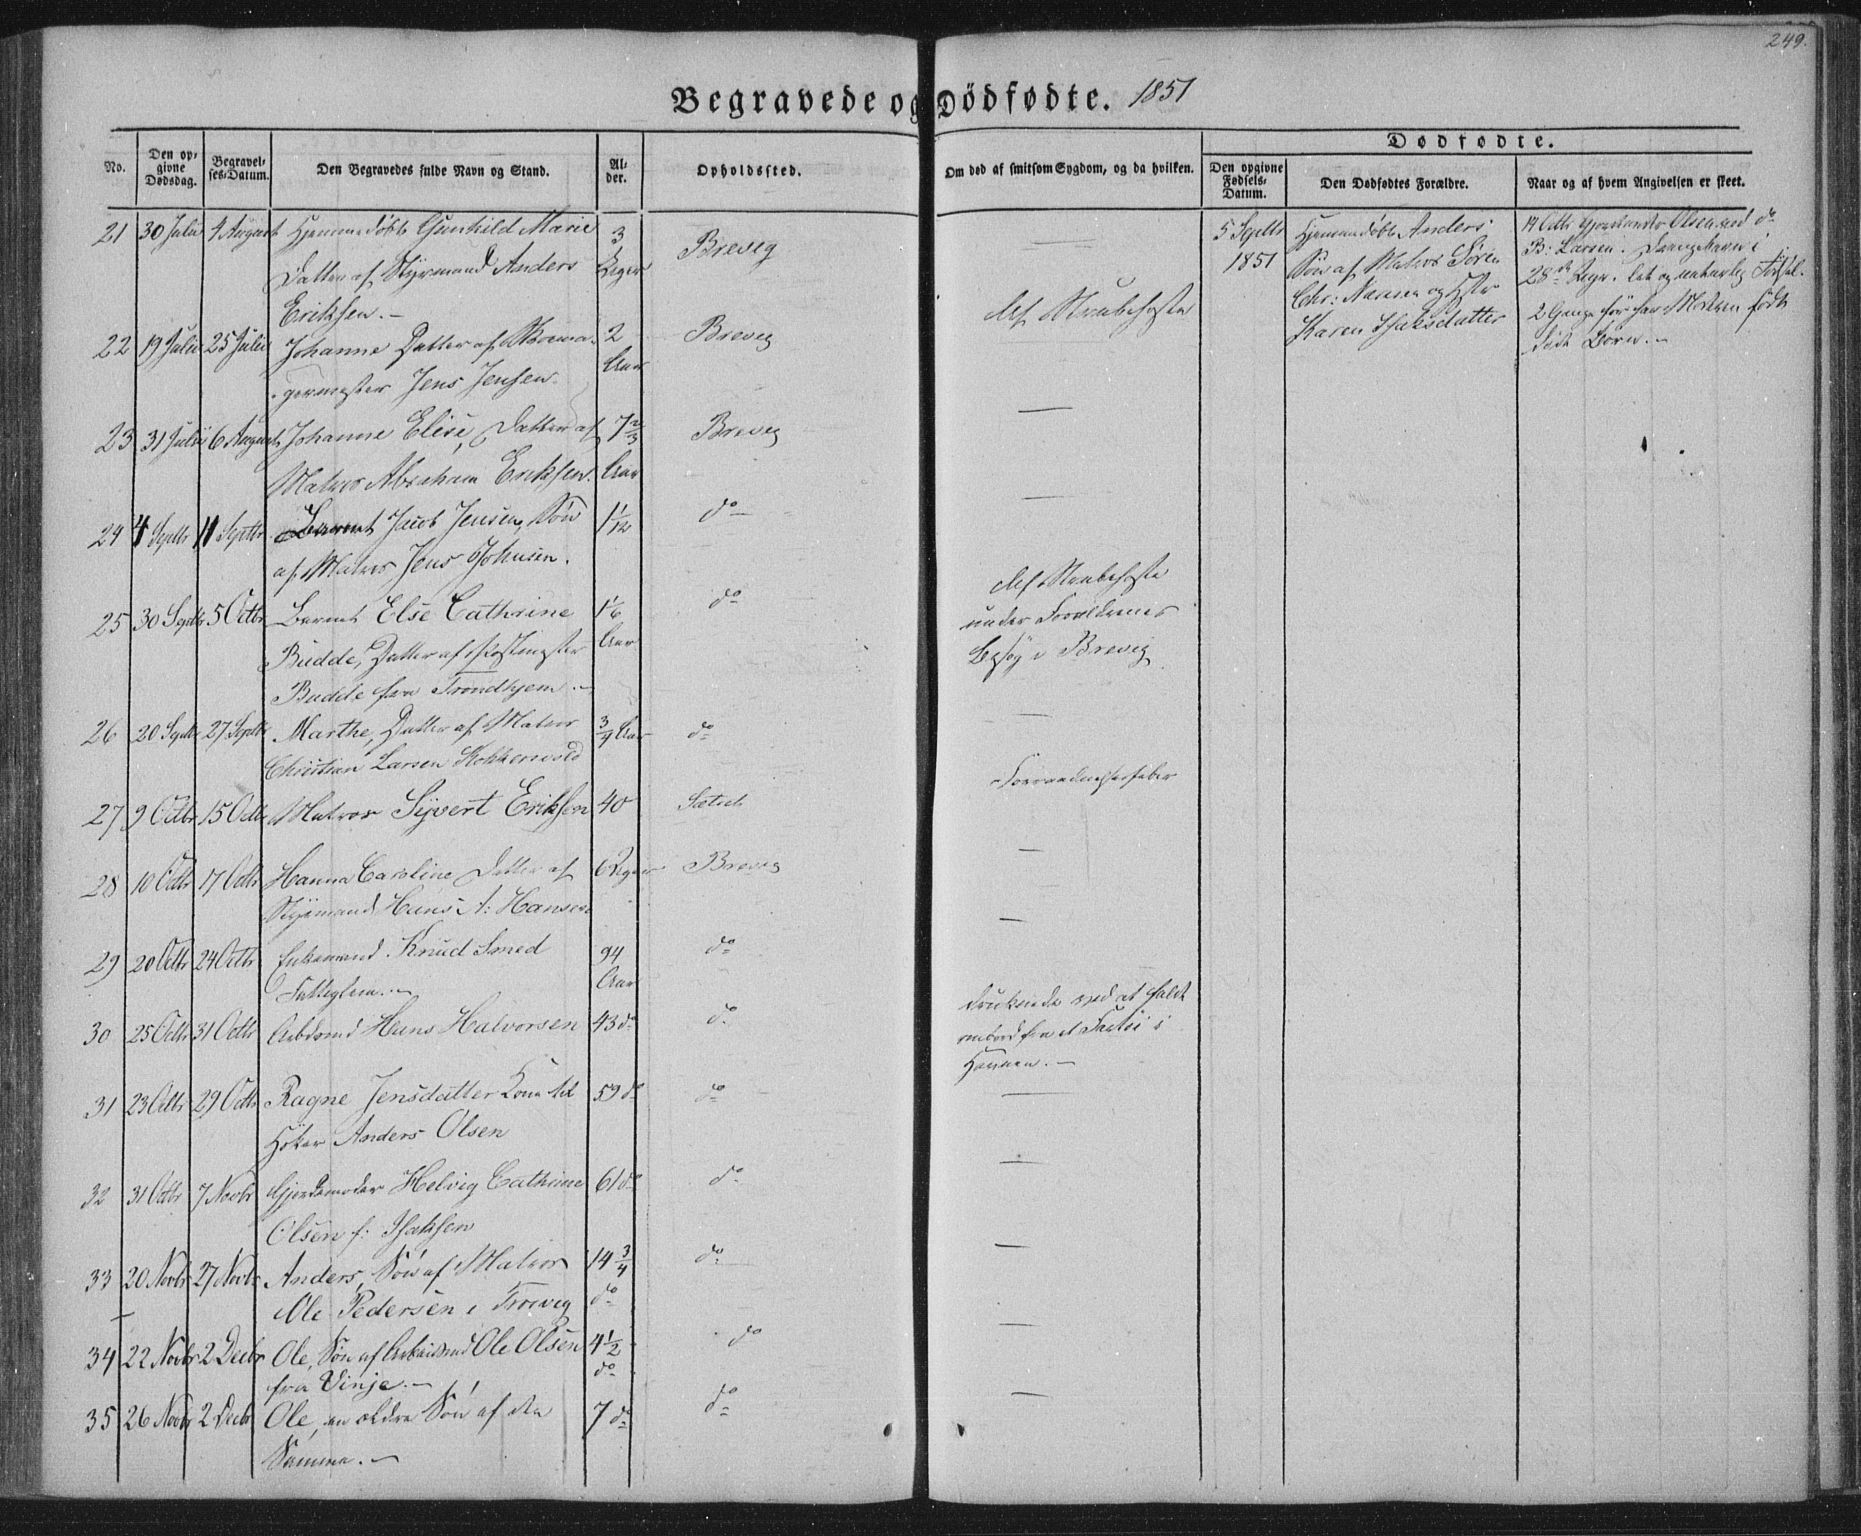 249.
Begravede og Dödfødte. 1851
Dødfødte.
No.
Den op-
givne
Dødsdag.
Begravel-
ses-Datum.
Den Begravedes fulde Navn og Stand.
Al-
der.
Opholdssted.
Om død af smitsom Sygdom, og da hvilken.
Den opgivne
Fødsels-
Datum.
Den Dødfødtes Forældre.
Naar og af hvem Angivelsen er skeet.
21 30 Julii 4 August Hjemmedøbt Gunhild Marie 3 Brevig
Datter af Styrmand Anders Uger
Eriksen.-
22 19 Julii 25 Julii Johanne Datter af 2 Brevig af Strubehoste
germester Jens Jensen. Aar
23 31 Julii 6 August Johanne Elise, Datter af 7 2/3 Brevig —
Matros Abraham Eriksen. Aar
24 4 Septbr 11 Septbr Jacob Jensen, Søn 1 1/12 do —
af Matros Jens Johnsen.
25 30 Septbr 5 Octbr Barnet Else Cathrine 1 1/6 do af Strubehoste
Budde, Datter af Postmester Aar under Forældrenes
Budde fra Trondhjem.- Besøg i Brevig
26 20 Septbr 27 Septbr Marthe, Datter af Matros 3/4 Aar do —
Christian Larsen
27 9 Octbr 15 Octbr Matros Syvert Eriksen 40 Forraadnelsesfeber
28 10 Octbr 17 Octbr Hanna Caroline Datter af 6 Uger Brevig —
Styrmand Hans A: Hansen
29 20 Octbr 24 Octbr Enkemand Knud Smed 94 do —
Fattiglem.- Aar
30 25 Octbr 31 Octbr Arbdsmd Hans Halvorsen 43 do do druknede ved at falde
ombord fra et Fartøi i
Havnen.-
31 23 Octbr 29 Octbr Ragne Jensdatter Kone til 59 do do —
Høker Anders Olsen
32 31 Octbr 7 Novbr Gjordemoder Helvig Cathrine 61 do do —
Olsen f: Isaksen
33 20 Novbr 27 Novbr Anders, Søn af Matros 14 3/4 do —
Ole Pedersen i do
34 22 Novbr 2 Decbr Ole, Søn af Arbeidsmd Ole Olsen 4 1/2 do —
fra Vinje.- do
35 26 Novbr 2 Decbr Ole, en ældre Søn af den 7 do do —
Samme.-
5 Septbr
1851
Hjemmedøbt Anders
Søn af Matros Søren
Chr: Nansen og Hstr
Karen Isaksdatter
14 Octbr Olsen ved do
B: Larsen. Drengebarn i
28de Uge. let og naturlig Fødsel.
2 Gange før har Moderen født
døde Børn.-